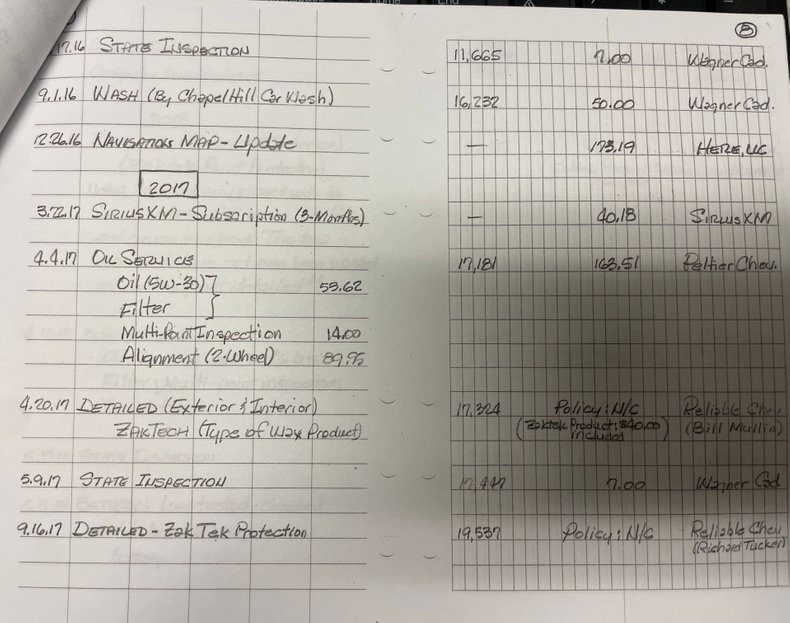 B
17.16 STATE INSPECTION 11,665 7.00 Wagner Cad.
9.1.16 WASH (By Chapel Hill Car Wash) 16,232 50.00 Wagner Cad.
12.26.16 NAVIGATION MAP - Update — 173.19 HERE, LLC
2017
3.22.17 SIRIUSXM - Subscription (3-Months) — 40.18 SIRIUSXM
4.4.17 OIL SERVICE 17,181 163.51 Peltier Chev.
Oil (5W-30) 53.62
Filter
Multi-Point Inspection 14.00
Alignment (2-Wheel) 89.95
4.20.17 DETAILED (Exterior & Interior) 17,324 Policy: N/C Reliable Chev
ZAKTECH (Type of Wax Product) (Zaktek Product: $40.00 included) (Bill Mullin)
5.9.17 STATE INSPECTION 17,447 7.00 Wagner Cad
9.16.17 DETAILED - Zak Tek Protection 19,537 Policy: N/C Reliable Chev
(Richard Tucker)